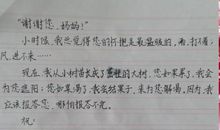 “谢谢您,妈妈!”
小时候,我总觉得您的怀抱是最温暖的,雨,打不着;
风,进不来……
现在,我从小树苗长成了茁壮的大树,您如果累了,我会
为您遮阳;您如果渴了,我会结果子,来为您解渴。因为,我
应该报答您,哪怕报答不完。
祝: